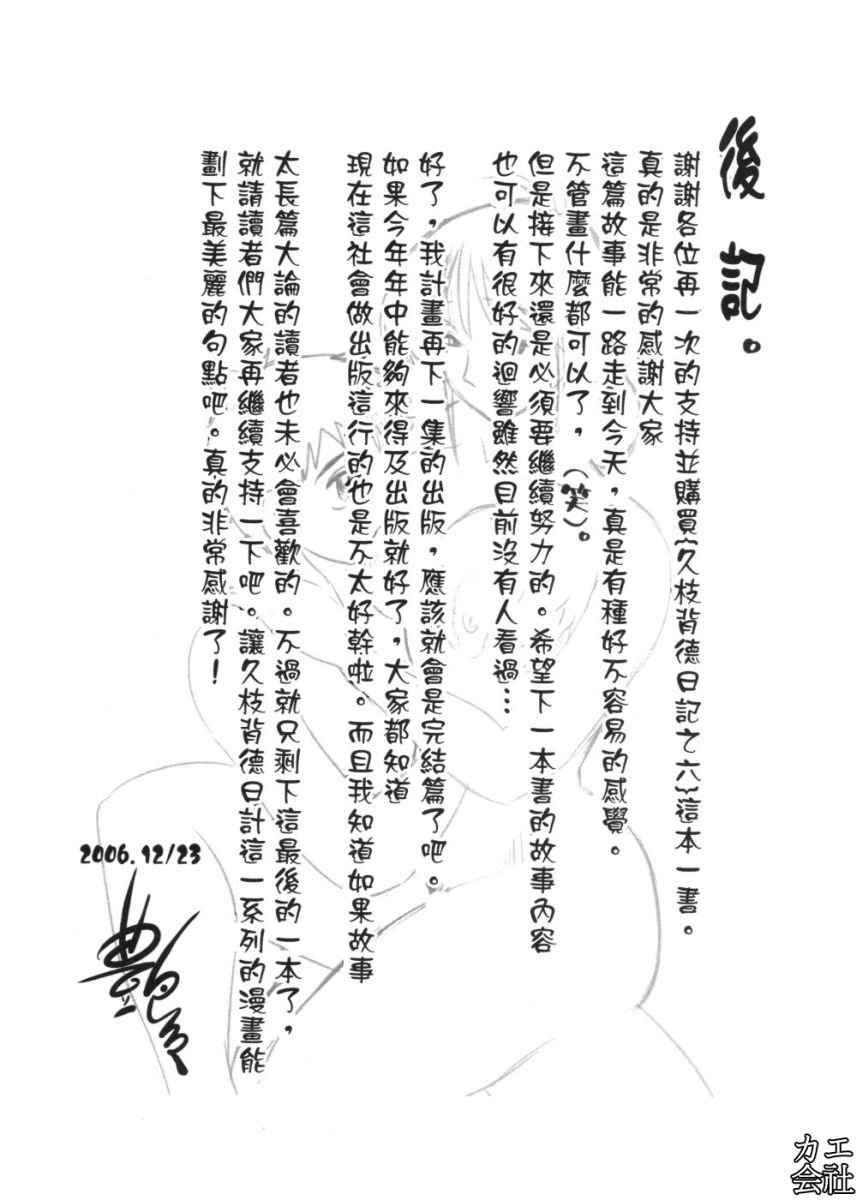 後記。
謝謝各位再一次的支持並購買~久枝背德日記之六~這本一書。
真的是非常的感謝大家
這篇故事能一路走到今天，真是有種好不容易的感覺。
不管畫什麼都可以了，（笑）。
但是接下來還是必須要繼續努力的。希望下一本書的故事內容
也可以有很好的迴響雖然目前沒有人看過…
好了，我計畫再下一集的出版，應該就會是完結篇了吧。
如果今年年中能夠來得及出版就好了，大家都知道
現在這社會做出版這行的也是不太好幹啦。而且我知道如果故事
太長篇大論的讀者也未必會喜歡的。不過就只剩下這最後的一本了，
就請讀者們大家再繼續支持一下吧。讓久枝背德日計這一系列的漫畫能
劃下最美麗的句點吧。真的非常感謝了！
2006.12/23
カエ
会社